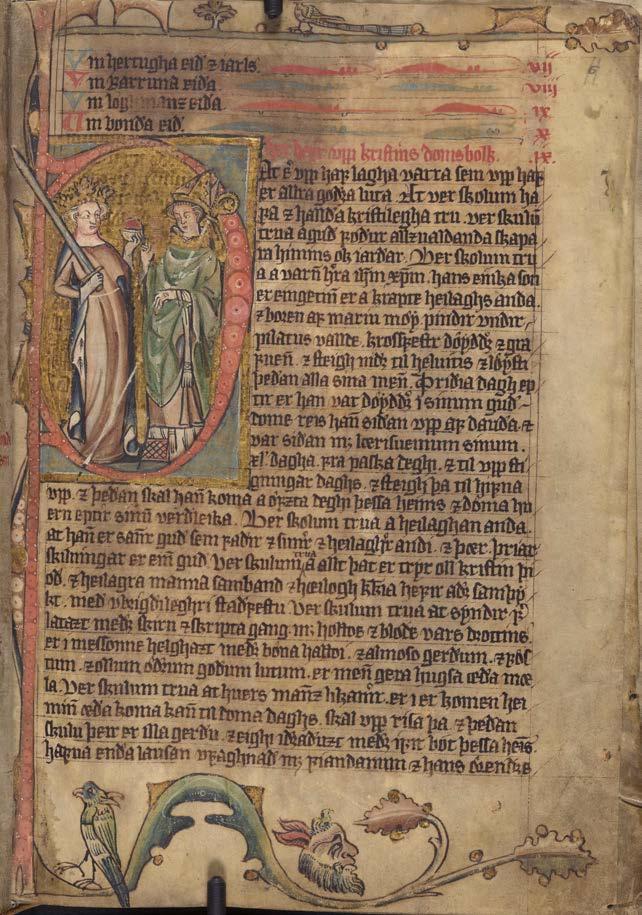 Um hertugha eid ⁊ iarls. vij
Um barruna eida. viij
Um logh manz eida. ix
Um bonda eid. x
her hefr upp kristins doms bolk. ix.
At er upp haf lagha varra sem upp haf
er allra godra luta. At ver skolum ha
fa ⁊ halda kristilegha tru. ver skulū
trua a gud fodur allzualdanda skapa
ra himins ok iardar. Ver skolum tru
a a varn hͬra ihm xpm. hans einka son
er eingetin er a krapte heilaghs anda.
⁊ boren af mariu møy. pindr undir
pilatus valde. krossfestr døyddr ⁊ gra
fuen. ⁊ steigh nidr til heluitis ⁊ løysti
þedan alla sina men. Þridia dagh ep
tir er han var døyddr i sinum gud
dome reis han sidan upp af dauda. ⁊
var sidan m; lærisueinum sinum.
xl dagha. fra paska deghi. ⁊ til upp sti
gningar daghs. ⁊ steigh þa til himna
upp. ⁊ þedan skal han koma a øfzta deghi þessa heims ⁊ doma hu
ern eptir sinū verdleika. Ver skolum trua a heilaghan anda.
at han er sanr gud sem fadir ⁊ sunr ⁊ heilaghr andi. ⁊ þær þriar
skilningar er ein gud. Ver skulum trua a allt þat er tryr oll kristin þi
od. ⁊ heilagra manna samband ⁊ hæilogh kkia hefir
kt. med ubrigdileghri stadfestu. Ver skulum trua at syndir
latazt medr skirn ⁊ skripta gang. m; holloe ⁊ blode vars drottins.
er i messonne helghazt medr bøna halloi. ⁊ almoso gerdum. ⁊ fos
tum. ⁊ ollum odrum godum lutum. er men gera hugsa æda mæ
la. Ver skulum trua at huers manz likamr. er i er komen hei
min æda koma kan til doma daghs. skal upp risa þa. ⁊ þedan
skulu þeir er illa gerdu. ⁊ eighi idraduzt medr bot þessa heīs.
hafua enda lausan ufaghnad m; fiandanum ⁊ hans ørendre